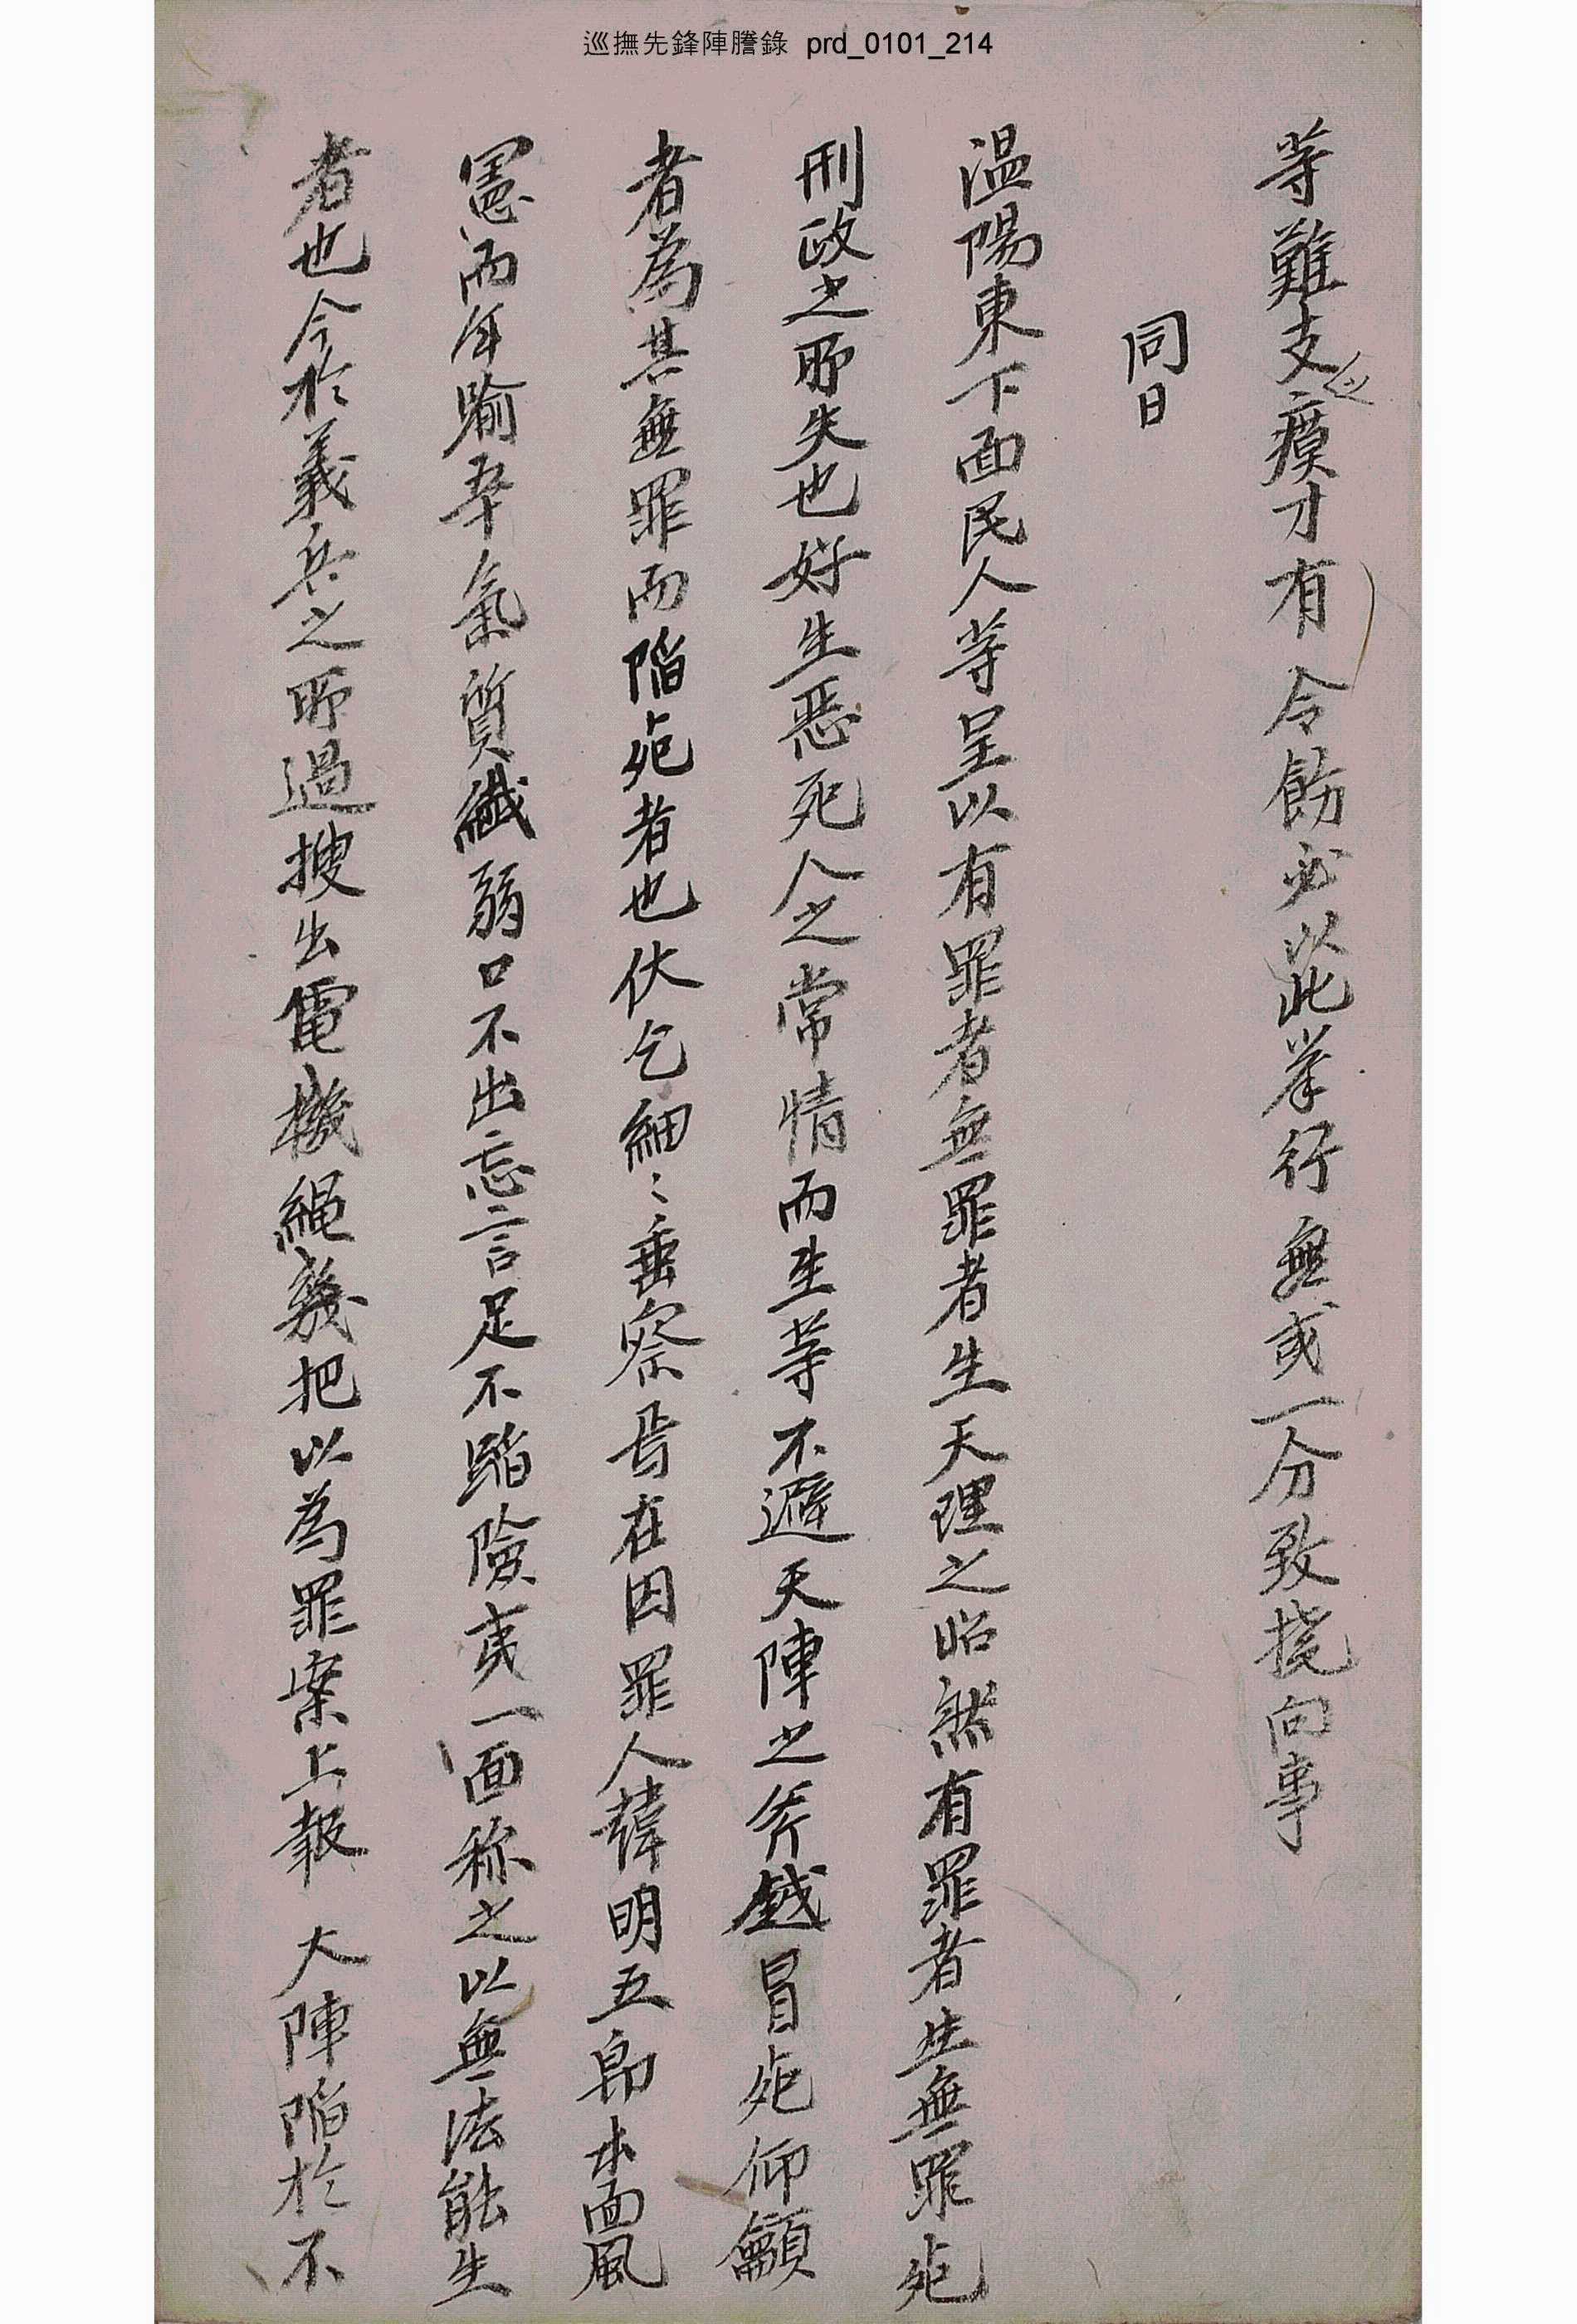 巡撫先鋒陣謄錄 prd_0101_214
等難支之瘼才有 令飭必以此举行 無或一分致撓向事
同日
温陽東下面民人等呈以有罪者無罪者生天理之昭然有罪者生無罪死
刑政之所失也好生惡死人之常情而生等不避天陣之斧鉞冒死仰籲
者為其無罪而陷死者也伏乞細〻垂察焉在囚罪人韓明五卽本面風
憲而年踰 氣質纖弱口不出忘言足不蹈險夷一面称之以無法能生
者也今於義兵之所過搜出電機繩幾把以為罪案上報 大陣陷於不